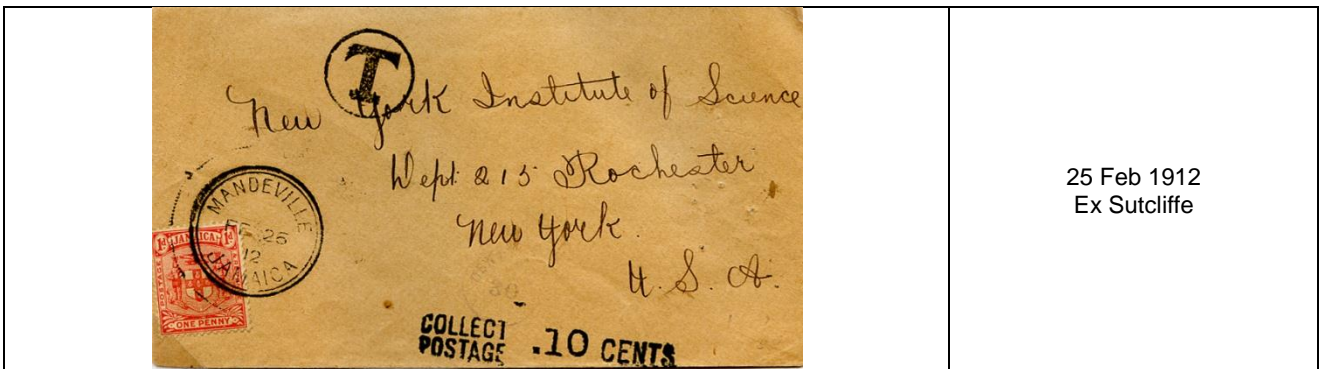 T
New York Institute of Science
Dept 215 Rochester
New York.
U. S. A.
MANDEVILLE
FE 25
12
JAMAICA
1d JAMAICA 1d
POSTAGE
ONE PENNY
30
COLLECT
POSTAGE .10 CENTS
25 Feb 1912
Ex Sutcliffe